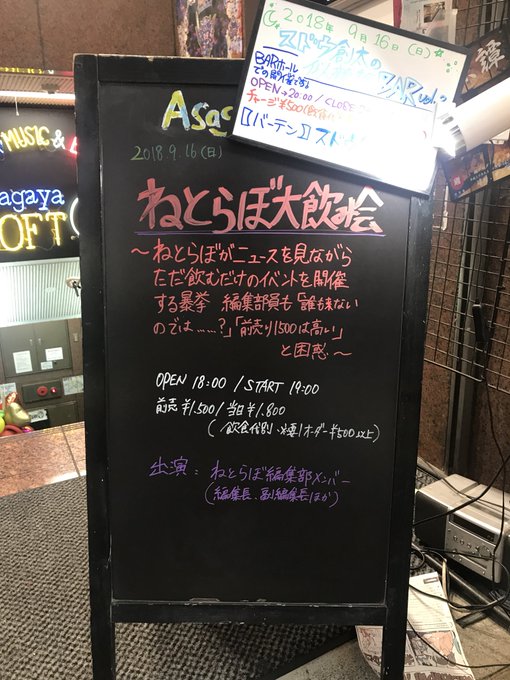 2018年 9月16日(日)
スドウ創太の
BARホール
での開催です。
OPEN→20:00 / CLOSE
チャージ¥500
【バーテン】スド
Asag
2018.9.16(日)
ねとらぼ大飲み会
~ねとらぼがニュースを見ながら
ただ飲むだけのイベントを開催
する暴挙 編集部員も「誰も来ない
のでは……?」「前売り1500は高い」
と困惑~
OPEN 18:00 / START 19:00
前売¥1.500/当日¥1.800
(飲食代別・要1オーダー¥500以上)
出演:ねとらぼ編集部メンバー
(編集長、副編集長ほか)
MUSIC &
agaya
OFT